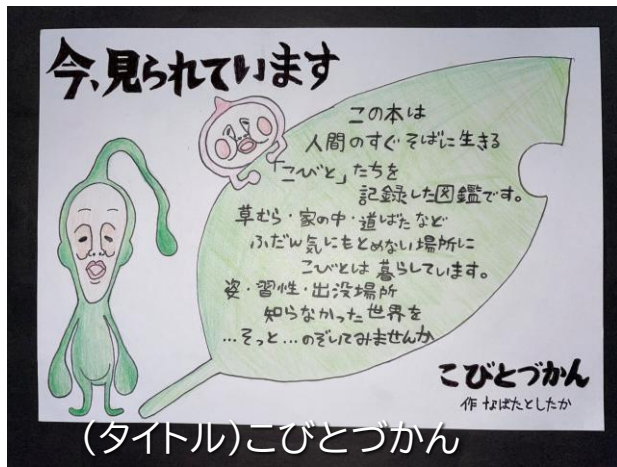 今、見られています
この本は
人間のすぐそばに生きる
「こびと」たちを
記録した図鑑です。
草むら・家の中・道ばたなど
ふだん気にもとめない場所に
こびとは暮らしています。
姿・習性・出没場所
知らなかった世界を
…そっと…のぞいてみませんか
こびとづかん
作 なばたとしたか
(タイトル)こびとづかん